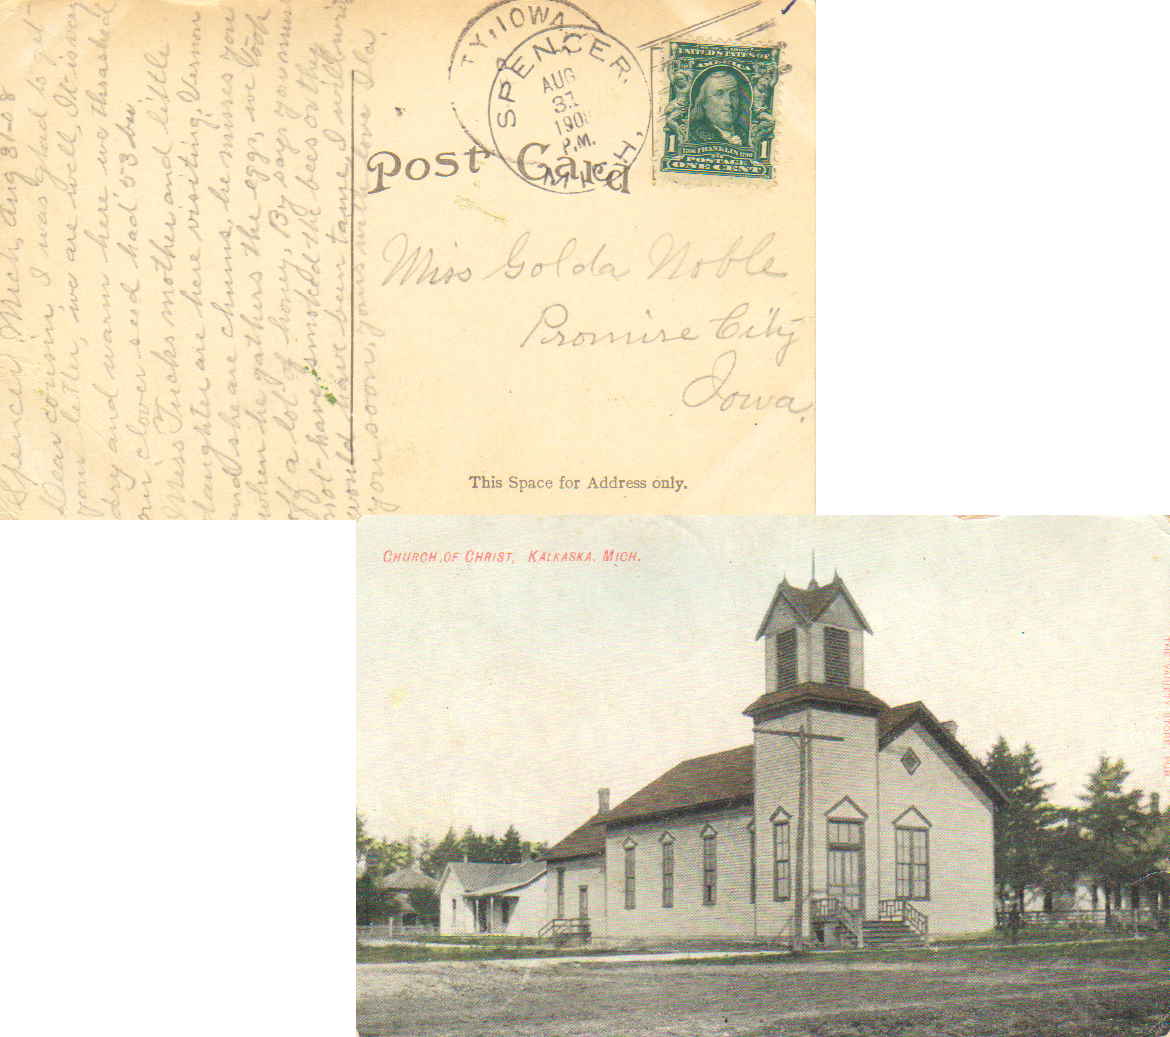 Spencer, Mich, Aug 31-08
Dear cousin, I was glad to get
your letter, we are well, It is very
dry and warm here we thrashed
our clover seed had 53 bu
Miss Tucks mother and little
daughter are here visiting, Vernon
and she are chums, he misses you
when he gathers the eggs, we took
off a lot of honey, By say you must
not have smoked the bees or they
would have been tame, I will write
you soon, yours with love Ila.
TY, IOWA
SPENCER,
AUG
31
1908
P.M.
MICH,
UNITED STATES OF
AMERICA
1 1
FRANKLIN
POSTAGE
ONE CENT
Post Card
Miss Golda Noble
Promise City
Iowa.
This Space for Address only.
CHURCH OF CHRIST, KALKASKA, MICH.